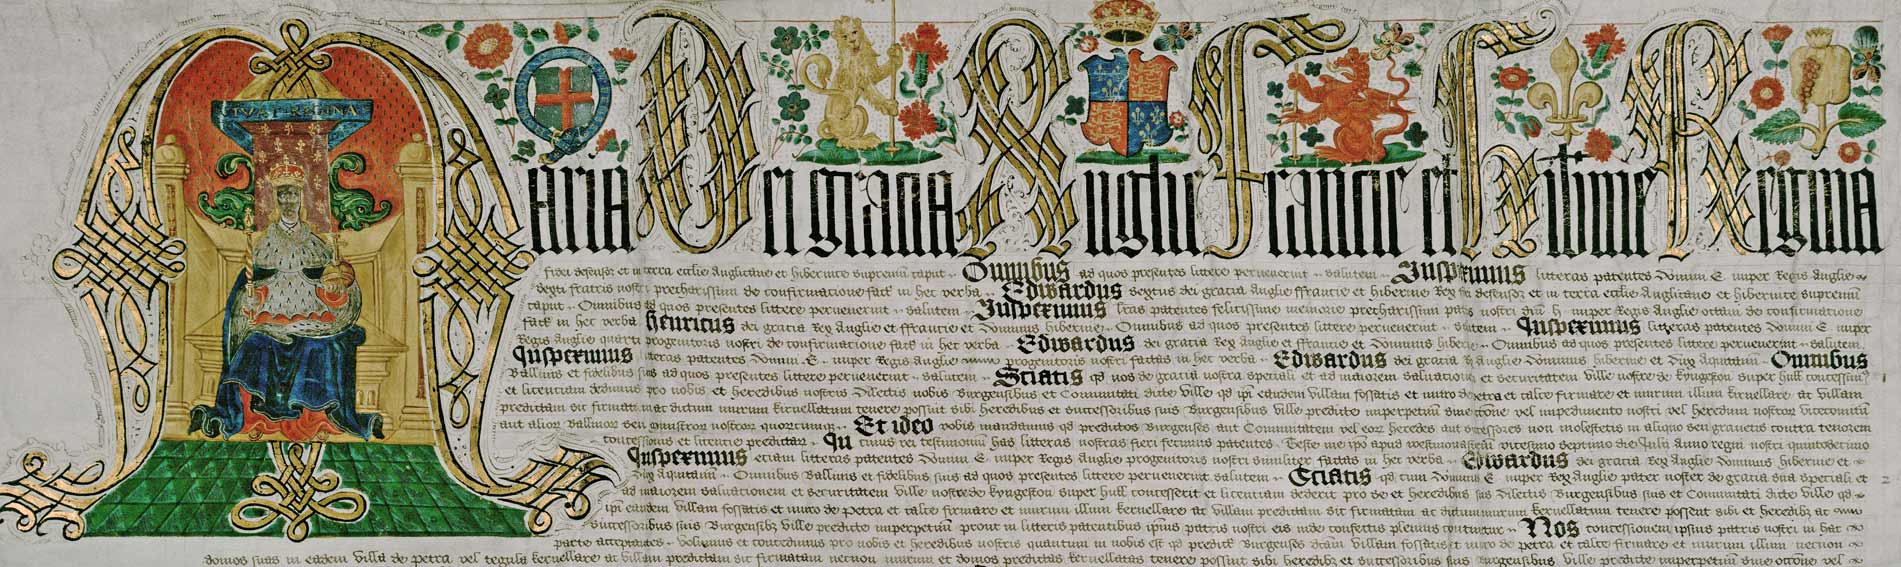 VIVAT REGINA
Maria Dei gracia Anglie Francie et Hibernie Regina
fidei defensor et in terra ecclie Anglicane et hibernice supremu caput Omnibus ad quos presentes littere pervenerint salutem Inspeximus litteras patentes Domini E nuper Regis Anglie
sexti fratris nostri precharissimi de confirmatione fact in hec verba Edwardus sextus dei gracia Anglie ffrancie et hibernie Rex fidei defensor et in terra ecclie Anglicane et hibernice supremu
caput Omnibus ad quos presentes littere pervenerint salutem Inspeximus lras patentes felicissime memorie precharissimi patris nostri dni h nuper Regis Anglie octavi de confirmatione
fact in hec verba henricus dei gracia Rex Anglie et ffrancie et Dominus hibernie Omnibus ad quos presentes littere pervenerint salutem Inspeximus litteras patentes Domini E nuper
Regis Anglie quarti progenitoris nostri de confirmatione fact in hec verba Edwardus dei gracia Rex Anglie et ffrancie et Dominus hibernie Omnibus ad quos presentes littere pervenerint salutem
Inspeximus litteras patentes Domini E nuper Regis Anglie progenitoris nostri factas in hec verba Edwardus dei gracia Rex Anglie Dominus hibernie et Dux Aquitanie Omnibus
Ballivis et fidelibus suis ad quos presentes littere pervenerint salutem Sciatis qd nos de gracia nostra speciali et ad maiorem salvationem et securitatem ville nostre de kyngeston super hull concessim
et licentiam dedimus pro nobis et heredibus nostris Dilectis nobis Burgensibus et Comunitati dicte ville qd ipi eandem villam fossatis et muro de petra et calce firmare et murum illum kernellare ac villam
predictam sic firmatam ac dictum murum kernellatum tenere possint sibi heredibus et successoribus suis Burgensibus ville predicte imperpetuum sine occone vel impedimento nostri vel heredum nostror vicecomitum
aut alior Ballivor seu ministror nostror quorcumque Et ideo vobis mandamus qd predictos Burgenses aut Comunitatem vel eor heredes aut successores non molestetis in aliquo seu gravetis contra tenorem
concessionis et licentie predictar In cuius rei testimonium has litteras nostras fieri fecimus patentes Teste me ipo apud westmonasterium vicesimo septimo die Julii Anno regni nostri quintodecimo
Inspeximus etiam litteras patentes Domini E nuper Regis Anglie progenitoris nostri similiter factas in hec verba Edwardus dei gracia Rex Anglie Dominus hibernie et
Dux Aquitanie Omnibus Ballivis et fidelibus suis ad quos presentes littere pervenerint salutem Sciatis qd cum Dominus E nuper Rex Anglie pater noster de gracia sua speciali et
ad maiorem salvationem et securitatem ville nostre de kyngeston super hull concesserit et licentiam dederit pro se et heredibus suis Dilectis Burgensibus suis et Comunitati dicte ville qd
ipi eandem villam fossatis et muro de petra et calce firmare et murum illum kernellare ac villam predictam sic firmatam ac dictum murum kernellatum tenere possent sibi et heredibz ac
successoribus suis Burgensibz ville predicte imperpetuum prout in litteris patentibus ipius patris nostri eis inde confectis plenius continetur Nos concessionem ipsius patris nostri in hac
parte acceptantes volumus et concedimus pro nobis et heredibus nostris quantum in nobis est qd predict Burgenses dictam villam fossatis et muro de petra et calce firmare et murum illum necnon
domos suas in eadem villa de petra vel tegula kernellare ac villam predictam sic firmatam necnon murum et domos predictas kernellatas tenere possint sibi heredibz et successoribus suis Burgensibus ville predicte imperpetuum sine occone vel